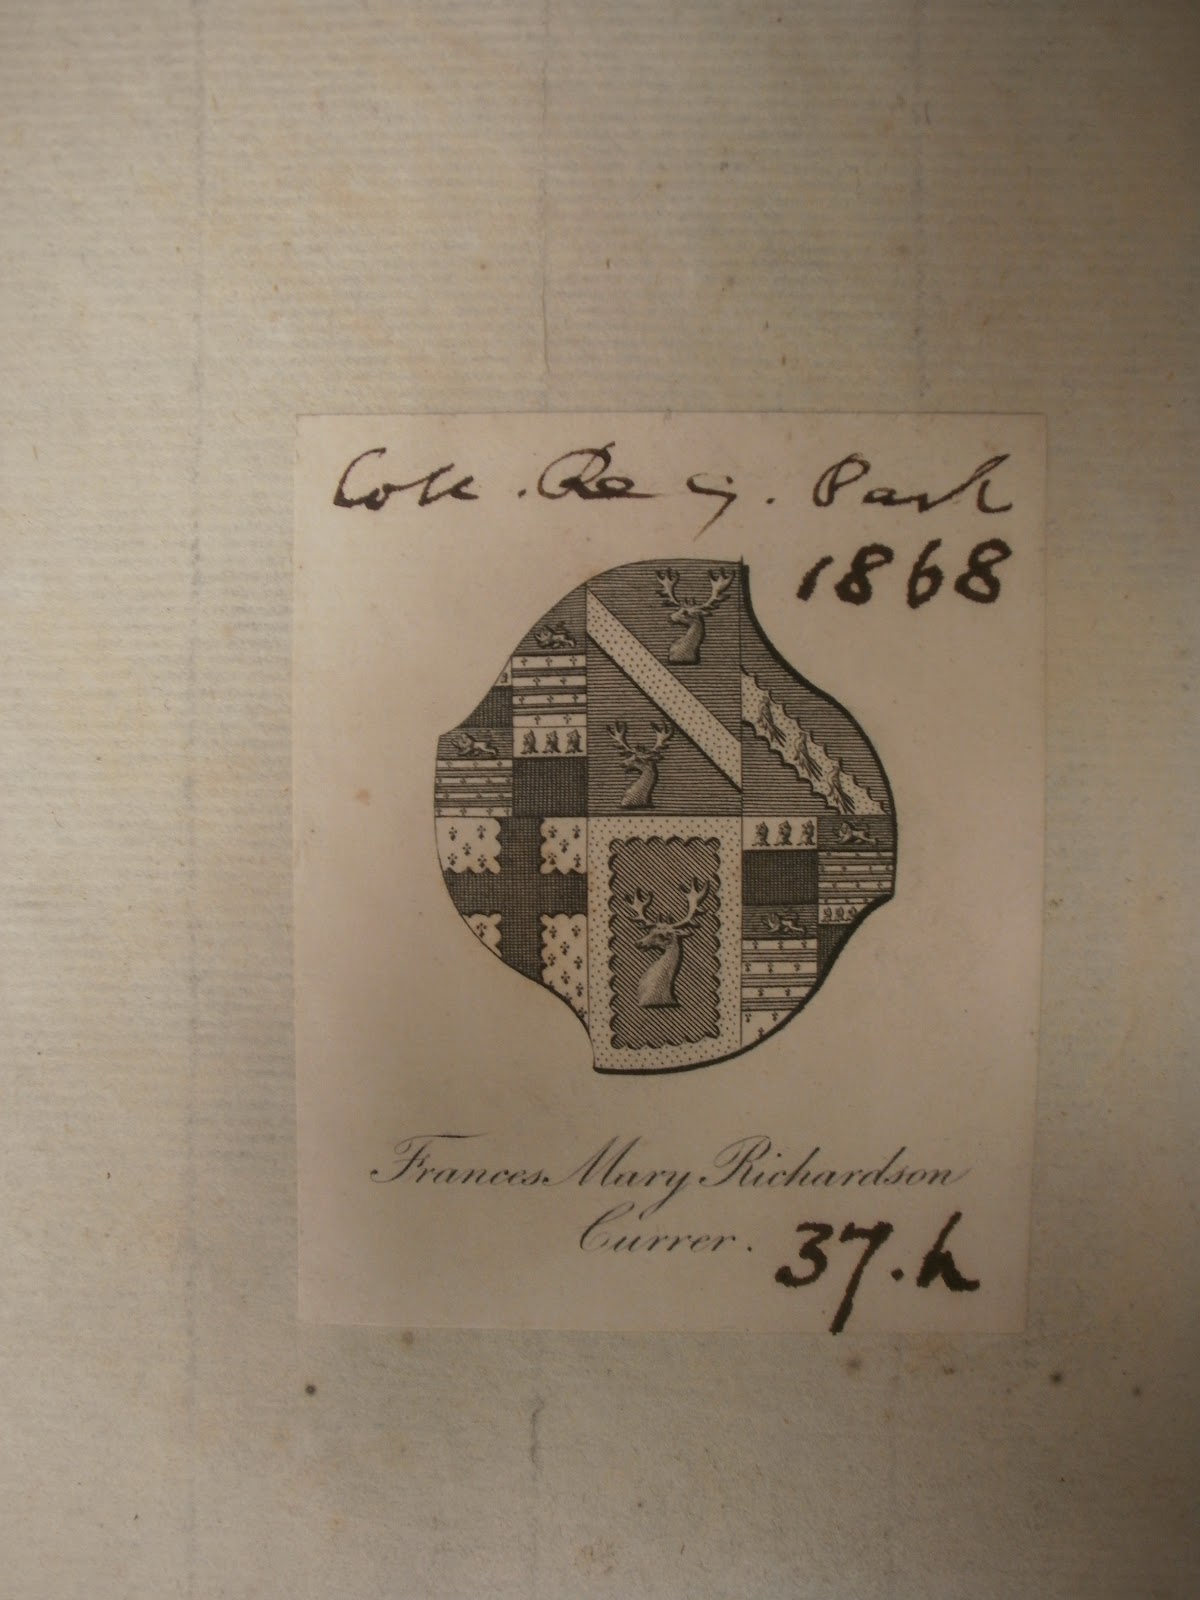 Coll. Reg. Park
1868
Frances Mary Richardson
Currer.
37.h